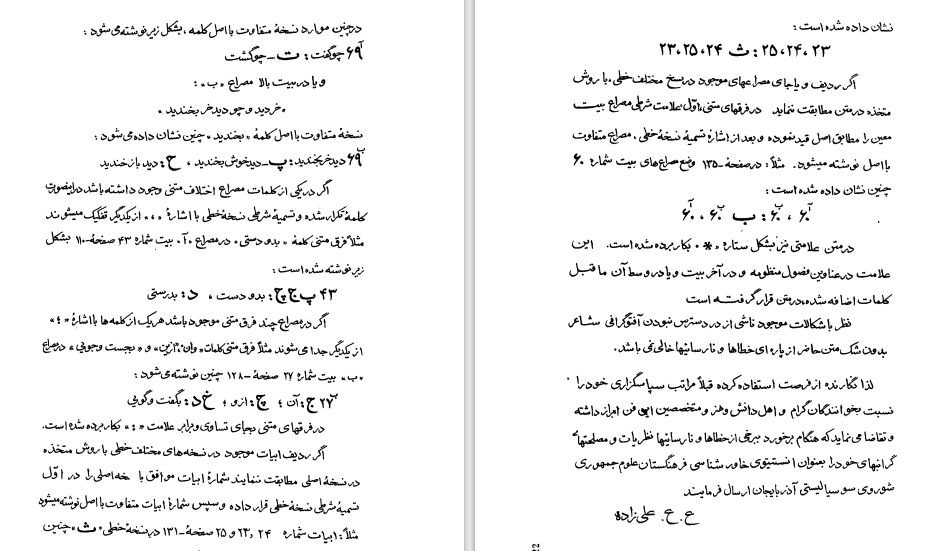 درچنین موارد نسخهٔ متفاوت بااصل کلمه ، بشکل زیر نوشته می‌شود :
۶۹آ چوگفت : ت ــ چوگشت
و یا در بیت بالا مصراع «ب» :
«خردید و چو دید خر بخندید »
نسخهٔ متفاوت با اصل کلمهٔ «بخندید» چنین نشان داده می‌شود :
۶۹ب دیدخر بخندید : پ ــ دیدخوش بخندید ، ح : دید باز خندید
اگر در یکی از کلمات مصراع اختلاف متنی وجود داشته باشد دراینصورت
کلمهٔ تکرار شده و تسمیهٔ شرطی نسخهٔ خطی با اشارهٔ «،» از یکدیگر تفکیک میشوند
مثلاً فرق متنی کلمهٔ «بدو دستی» در مصراع «آ» بیت شماره ۴۳ صفحهٔ ــ ۱۱۰ بشکل
زیر نوشته شده است :
۴۳ پ ج چ : بدو دست ، د : بدرستی
اگر درمصراع چند فرق متنی موجود باشد هریک از کلمه ها با اشارهٔ « ؛ »
از یکدیگر جدا می شوند مثلاً فرق متنی کلمات «وان» ، «ازین» و «بجست وجویی» درمصراع
«ب» بیت شماره ۲۷ صفحهٔ ــ ۱۲۸ چنین نوشته می‌شود :
۲۷ب ج : آن ؛ چ : ازو ؛ خ د : بگفت وگویی
در فرقهای متنی بجای تساوی و برابر علامت « : » بکار برده شده است.
اگر ردیف ابیات موجود در نسخه‌های مختلف خطی با روش متخذه
در نسخهٔ اصلی مطابقت ننمایند شمارهٔ ابیات موافق با خه اصلی را در اوّل
تسمیهٔ شرطی نسخهٔ خطی قرار داده و سپس شمارهٔ ابیات متفاوت با اصل نوشته میشود
مثلاً : ابیات شماره ۲۳، ۲۴ و ۲۵ صفحهٔ ــ ۱۳۱ در نسخهٔ خطی «ث» چنین
نشان داده شده است :
۲۳ ، ۲۴ ، ۲۵ : ث ۲۴ ، ۲۵ ، ۲۳
اگر ردیف و یا جای مصراعهای موجود در نسخ مختلف خطی ، با روش
متخذه در متن مطابقت ننماید در فرقهای متنی ، با اوّل علامت شرطی مصراع بیت
معین را مطابق اصل قید نموده و بعد از اشارهٔ تسمیهٔ نسخهٔ خطی ، مصراع متفاوت
با اصل نوشته میشود. مثلاً : در صفحهٔ ــ ۱۳۵ وضع مصراع‌های بیت شماره ۶۰
چنین نشان داده شده است :
۶۰آ ، ۶۰ب : ب ۶۰ب ، ۶۰آ
در متن علامتی نیز بشکل ستاره «*» بکار برده شده است. این
علامت در عناوین فصول منظومه و در آخر بیت و یا در وسط آن ما قبل
کلمات اضافه شده ، درمتن قرار گرفته است
نظر باشکالات موجود ناشی از در دسترس نبودن آفتوگرافی شاعر
بدون شک متن حاضر از پاره ای خطاها و نارسائیها خالی نمی باشد.
لذا نگارنده از فرصت استفاده کرده قبلاً مراتب سپاسگزاری خود را
نسبت بخوانندگان گرام و اهل دانش وهنر و متخصصین این فن ابراز داشته
و تقاضا می نماید که هنگام برخورد ببرخی از خطاها و نارسائیها نظریات و مصلحتهای
گرانبهای خود را بعنوان انستیتوی خاور شناسی فرهنگستان علوم جمهوری
شوروی سوسیالیستی آذربایجان ارسال فرمایند
ع . ع . علی زاده
22